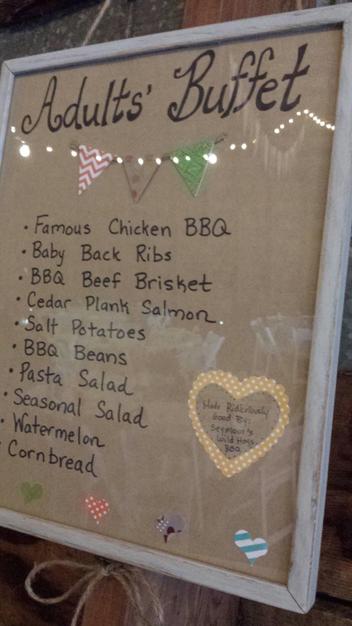 Adults' Buffet
• Famous Chicken BBQ
• Baby Back Ribs
• BBQ Beef Brisket
• Cedar Plank Salmon
• Salt Potatoes
• BBQ Beans
• Pasta Salad
• Seasonal Salad
• Watermelon
• Cornbread
Made Ridiculously
Good By:
Seymour's
Wild Hogs
BBQ